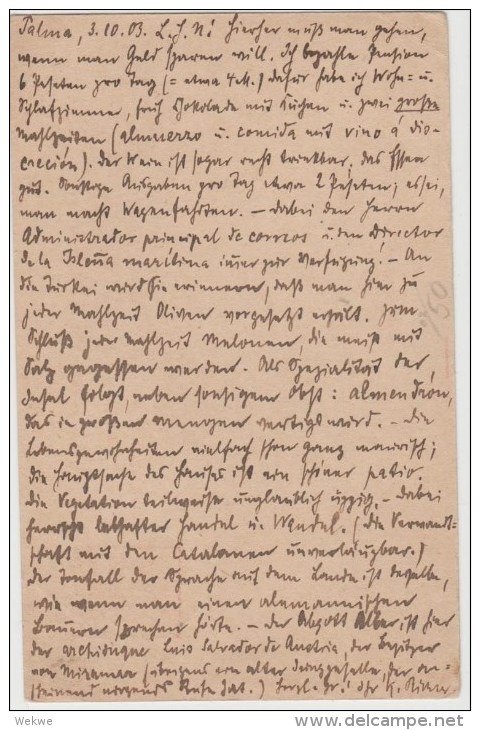 Palma, 3.10.03. L. H. N! Hierher muß man gehen,
wenn man Geld sparen will. Ich bezahle Pension
6 Peseten pro Tag (= etwa 4 M.) dafür habe ich Wohn- u.
Schlafzimmer, früh Chokolade mit Kuchen u. zwei große
Mahlzeiten (almuerzo u. comida mit vino á dis-
creción). Der Wein ist sogar recht trinkbar, das Essen
gut. Sonstige Ausgaben pro Tag etwa 2 Peseten; es sei,
man macht Wagenfahrten. – Dabei den Herrn
Administrador principal de correos u. den Director
de la Isleña maritima immer zur Verfügung! – An
die Türkei wird Sie erinnern, daß man hier zu
jeder Mahlzeit Oliven vorgesetzt erhält. Zum
Schluß jeder Mahlzeit Melonen, die meist mit
Salz gegessen werden. Als Spezialität der
Insel folgt, neben sonstigem Obst: almendrón,
das in großen Mengen vertilgt wird. – Die
Lebensgewohnheiten vielfach schon ganz maurisch;
die Hauptsache des Hauses ist ein schöner patio.
Die Vegetation teilweise unglaublich üppig. – Dabei
herrscht lebhafter Handel u. Wandel. (Die Verwandt-
schaft mit den Catalanen unverläugbar.)
Der Tonfall der Sprache auf dem Lande ist derselbe,
wie wenn man einen alemannischen
Bauern sprechen hörte. – Der Abgott Aller ist hier
der archiduque Luis Salvador de Austria, der Besitzer
von Miramar (übrigens ein alter Junggeselle, der an-
scheinend nirgends Ruhe hat.) Herzl. Gr.! Ihr K.
750
Wekwe
www.delcampe.net